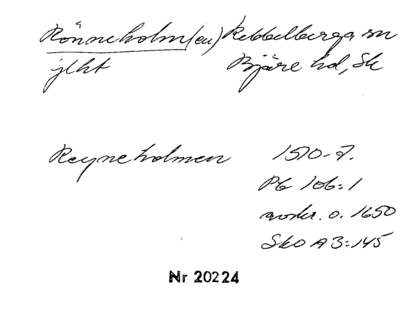 Rönneholm(en) Rebbelberga sn
jlht Bjäre hd, Sk
Reyneholmen 1570-7.
PG 106:1
avskr. o. 1650
Sko A3:145
Nr 20224